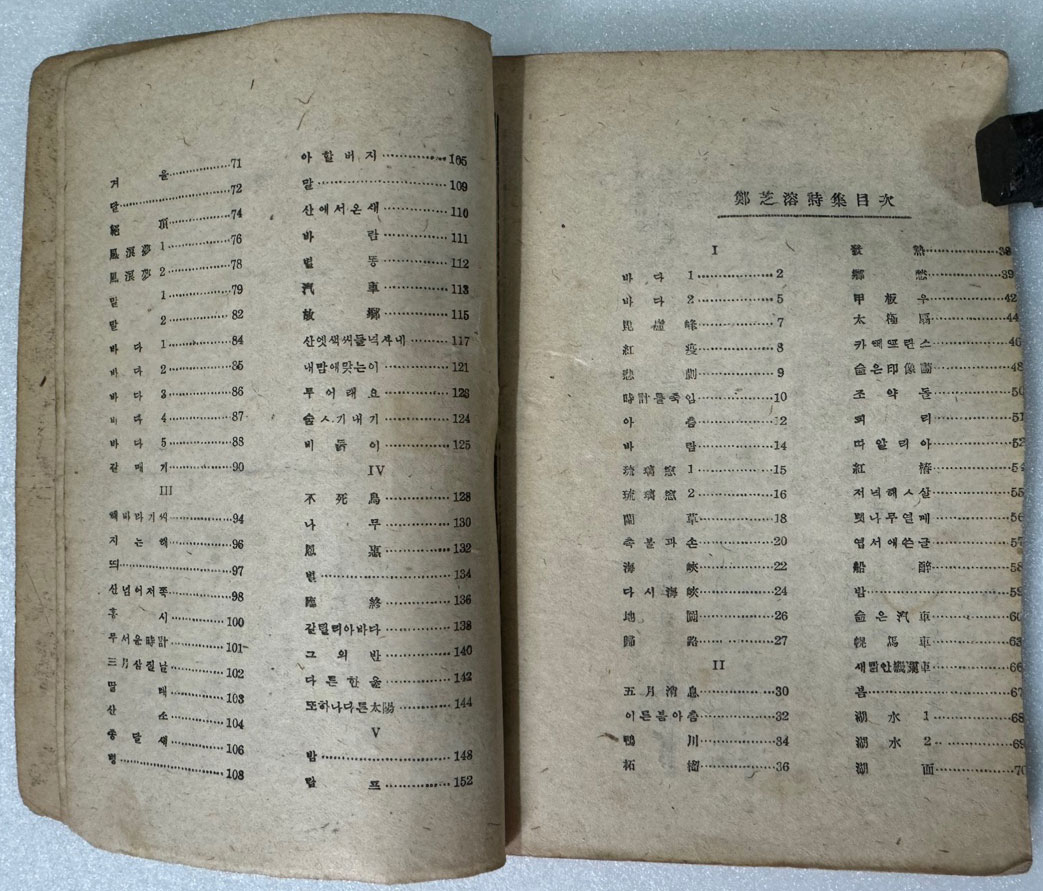 鄭芝溶詩集目次
I
바다 1 2
바다 2 5
毘盧峰 7
紅疫 8
悲劇 9
時計를죽임 10
아츰 12
바람 14
琉璃窓 1 15
琉璃窓 2 16
蘭草 18
촉불과손 20
海峽 22
다시海峽 24
地圖 26
歸路 27
II
五月消息 30
이른봄아츰 32
鴨川 34
柘榴 36
發熱 38
鄕愁 39
甲板우 42
太極扇 44
카페프란스 46
슬픈印像畵 48
조약돌 50
피리 51
따알리아 52
紅椿 54
저녁해ㅅ살 55
뻣나무열매 56
엽서에쓴글 57
船醉 58
밤 59
슬픈汽車 60
幌馬車 63
새빩안機關車 66
봄 67
湖水 1 68
湖水 2 69
湖面 70
겨울 71
달 72
絕頂 74
風浪夢 1 76
風浪夢 2 78
말 1 79
말 2 82
바다 1 84
바다 2 85
바다 3 86
바다 4 87
바다 5 88
갈매기 90
III
해바라기씨 94
지는해 96
띄 97
산넘어저쪽 98
홍시 100
무서운時計 101
三月삼질날 102
딸레 103
산소 104
종달새 106
병 108
아할버지 105
말 109
산에서온새 110
바람 111
별똥 112
汽車 113
故鄕 115
산엣색씨들녁사내 117
내맘에맞는이 121
무어래요 123
숨ㅅ기내기 124
비둙이 125
IV
不死鳥 128
나무 130
恩惠 132
별 134
臨終 136
갈릴레아바다 138
그의반 140
다른한울 142
또하나다른太陽 144
V
밤 148
람프 152